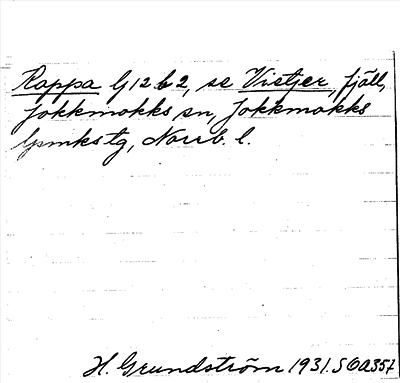 Rappa G12b2, se Vietjer, fjäll,
Jokkmokks sn, Jokkmokks
lpmkstg, Norrb. l.
H. Grundström 1931. SOA357